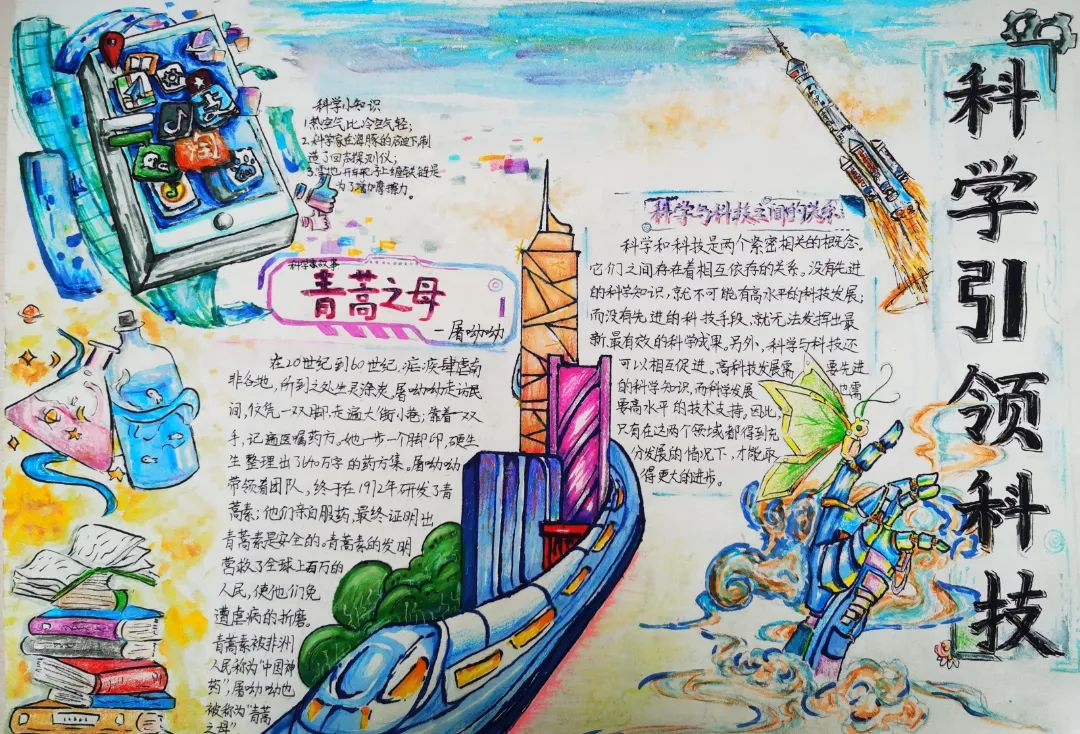 科学引领科技
科学小知识
1.热空气比冷空气轻；
2.科学家在海豚的启迪下制
造了回声探测仪；
3.雪地开车轮子上缠铁链是
为了增加摩擦力。
科学家故事
青蒿之母
—屠呦呦
在20世纪到60世纪，疟疾肆虐南
非各地，所到之处生灵涂炭，屠呦呦走访民
间，仅凭一双脚，走遍大街小巷；靠着一双
手，记遍医嘱药方。她一步一个脚印，硬生
生整理出了640万字的药方集。屠呦呦
带领着团队，终于在1972年研发了青
蒿素；他们亲自服药，最终证明出
青蒿素是安全的。青蒿素的发明
营救了全球上百万的
人民，使他们免
遭虐病的折磨。
青蒿素被非洲
人民称为“中国神
药”；屠呦呦也
被称为“青蒿
之母”
科学与科技之间的关系
科学和科技是两个紧密相关的概念。
它们之间存在着相互依存的关系。没有先进
的科学知识，就不可能有高水平的科技发展；
而没有先进的科技手段，就无法发挥出最
新、最有效的科学成果。另外，科学与科技还
可以相互促进。高科技发展需要先进
的科学知识，而科学发展也需
要高水平的技术支持。因此，
只有在这两个领域都得到充
分发展的情况下，才能取
得更大的进步。
淘